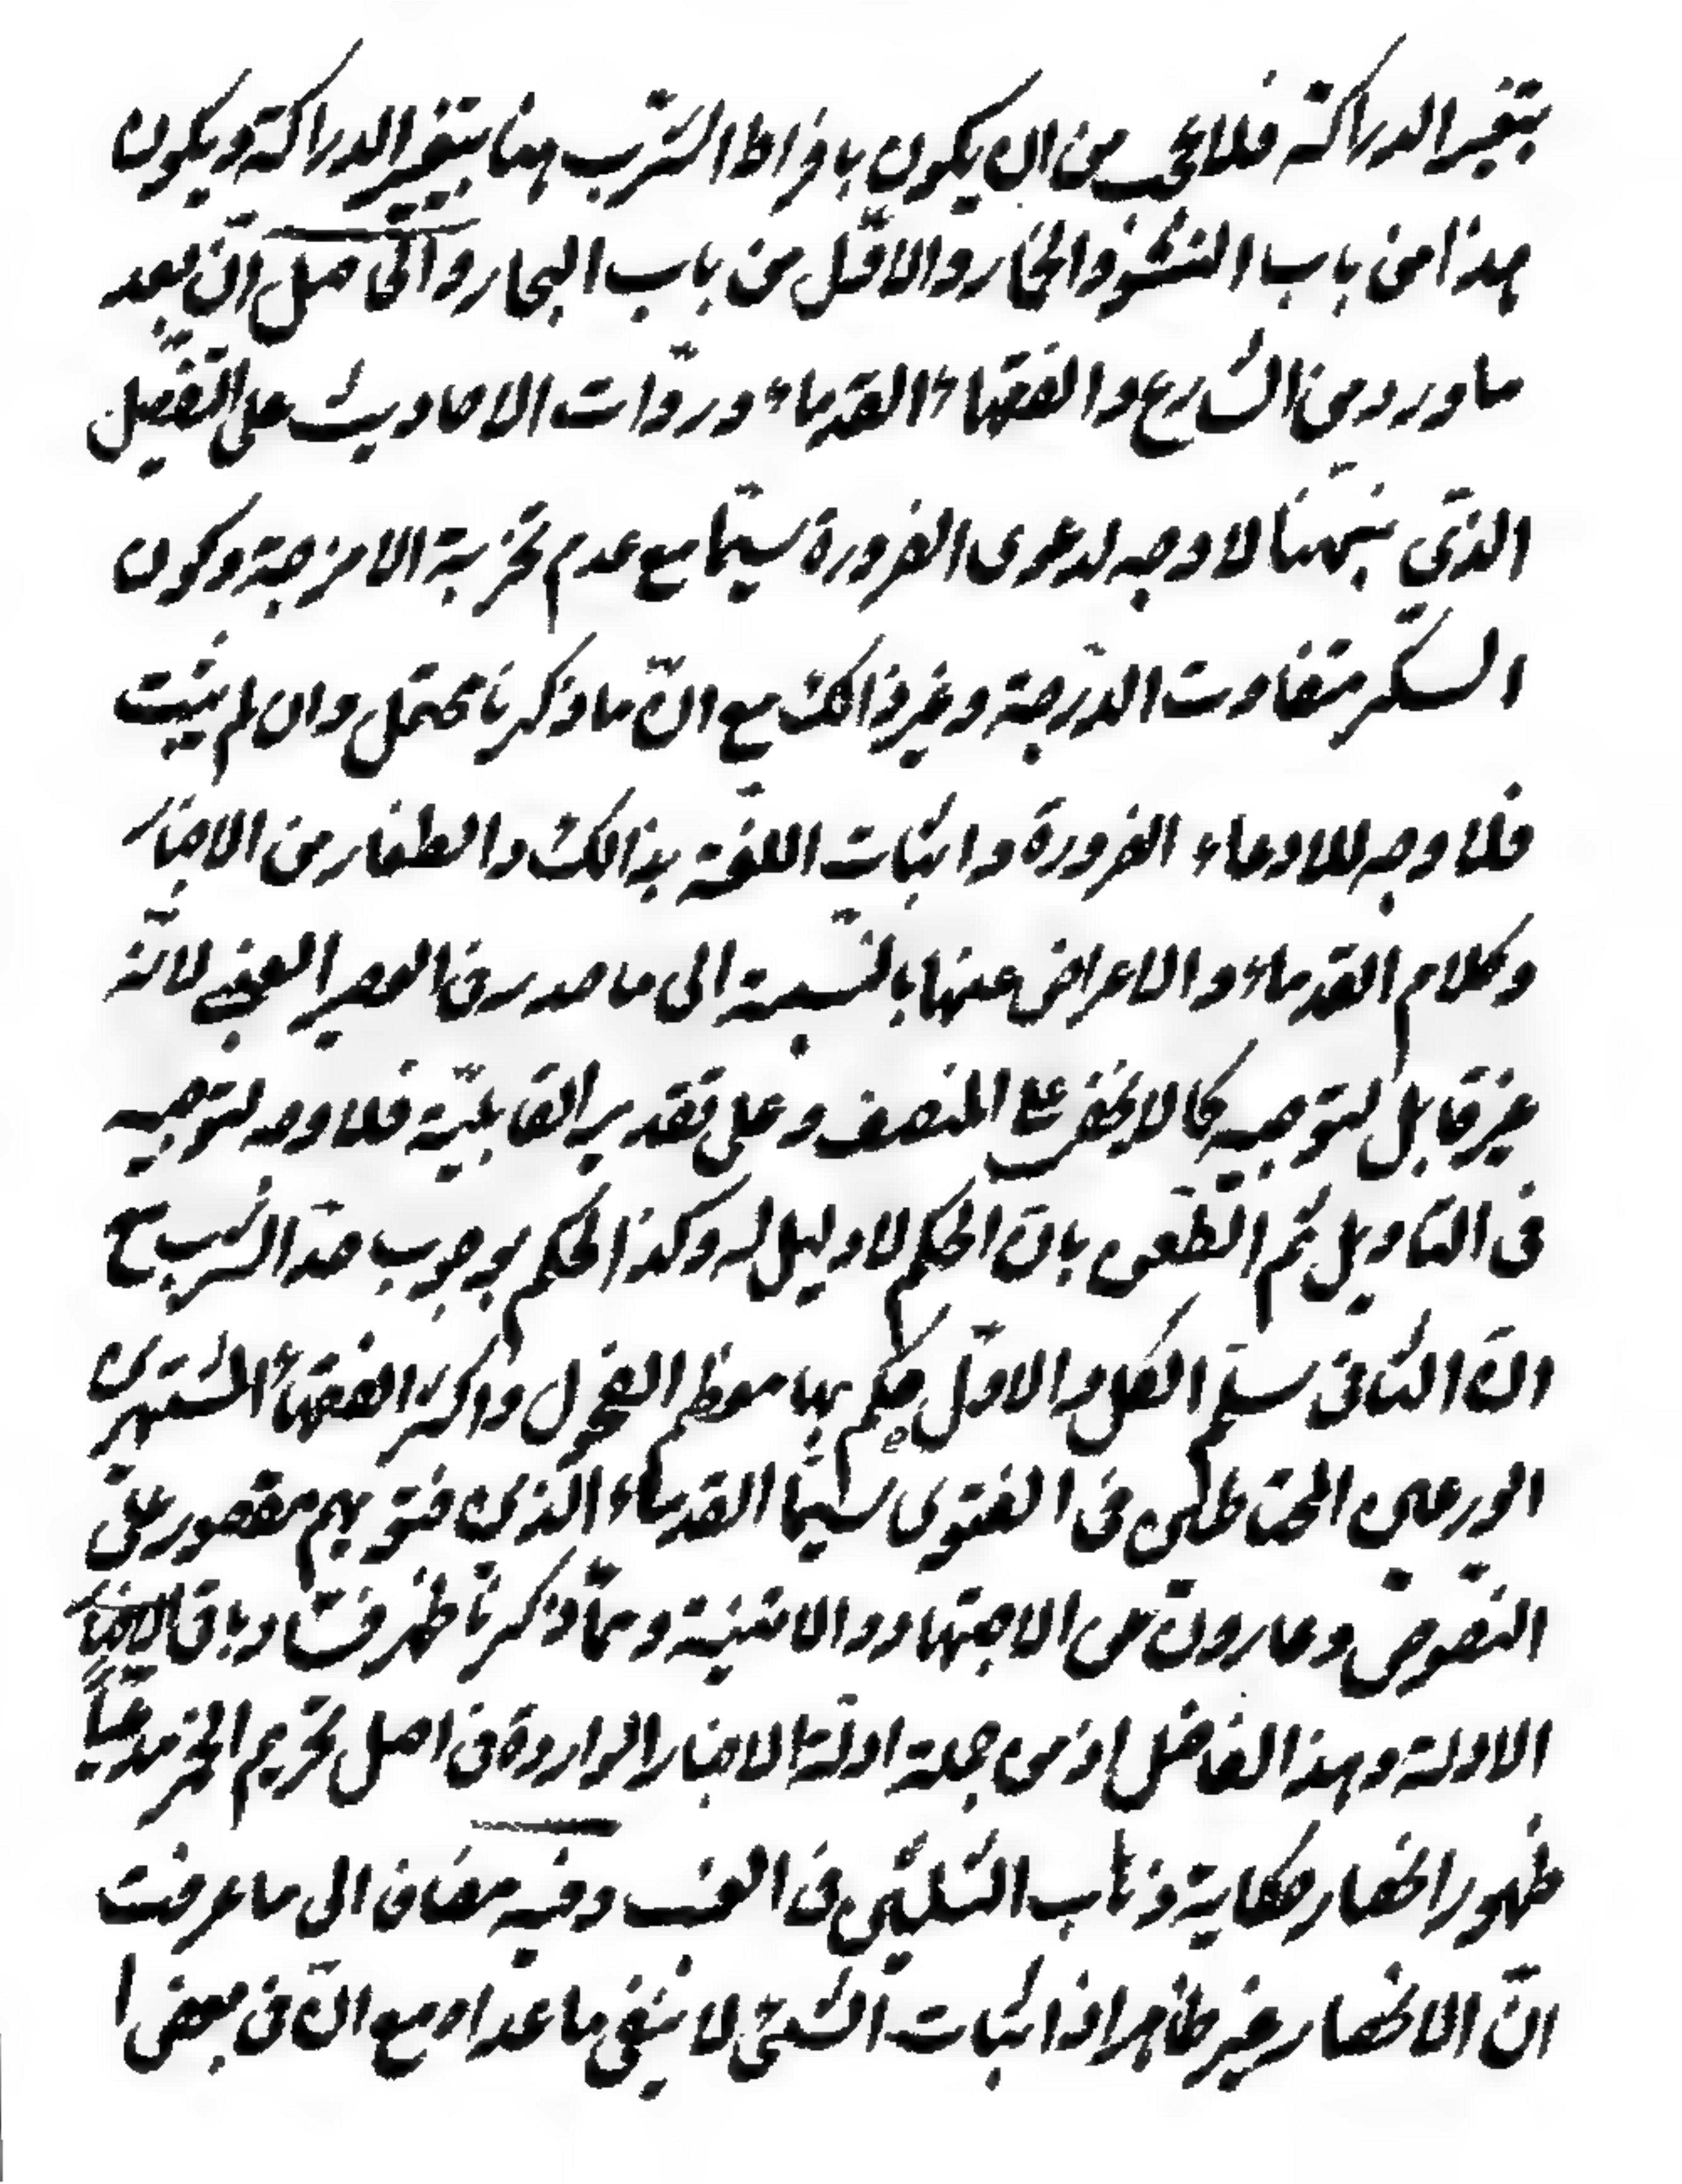 بتغير الدراكة فلا من ان يكون بافراط الشرب هنا بتغير الدراكة ويكون
هذا من باب النشو والخمار والاوّل من باب البحار والحاصل انّ بعد
ما ورد من الشارع والفقهاء القدماء وروّات الاحاديث على التفصيل
الذي لا وجه لدعوى الضرورة سيّما مع عدم تجربة الامزجة وكون
السكر متفاوت الدّرجة وغير ذالك مع انّ ما ذكرنا محتمل وان لم يثبت
فلا وجه للادعاء الضرورة واثبات اللغة بذالك من الاخبار
وكلام القدماء والاعراض عنها بالنّسبة الى ما صدر من العصير العنبى لانّه
غير قابل لتوجيه كما لا يخفى على المنصف وعلى تقدير القابليّة فلا وجه لتوجيه
فى التاويل ثم الطّعن بانّ الحكم لا دليل له وكذا الحكم بوجوب حدّ الشرب مع
انّ الثانى سلّم الكل والاوّل حكم بها معظم الفحول واكثر الفقهاء المشتهرين
الورعين المحتاطين فى الفتوى سيّما القدماء الذين فتويهم مقصور على
النّصوص وعارون عن الاجتهاد وممّا ذكرنا ظهر فساد باقى
الادلة وهذا الفاضل اذ من جملة ادلّة الاخبار الواردة فى اصل تحريم الخمر مدعيّا
ظهور انحصار حكاية ذهاب الثلثين فى العنب وفيه مضاف الى ما عرفت
انّ الانحصار غير ظاهر اذ اثبات الشّئ لا ينفى ما عداه مع انّ فى بعض ا